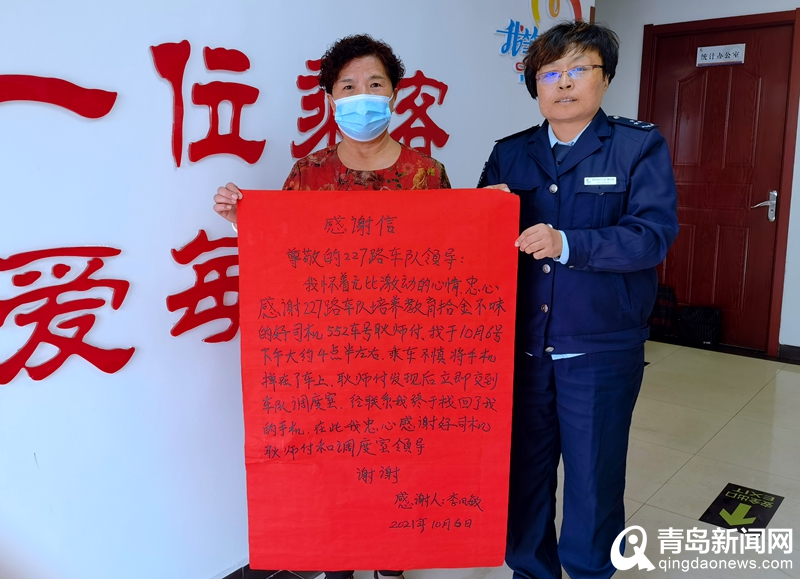 一位乘客
爱每
统计办公室
感谢信
尊敬的227路车队领导：
我怀着无比激动的心情，忠心
感谢227路车队培养教育拾金不昧
的好司机552车号耿师付，我于10月6号
下午大约4点半左右，乘车不慎将手机
掉在了车上，耿师付发现后立即交到
车队调度室，经联系我终于找回了我
的手机，在此我忠心感谢好司机
耿师付和调度室领导
谢谢
感谢人：李风敏
2021年10月6日
安全出口
EXIT
青岛新闻网
qingdaonews.com